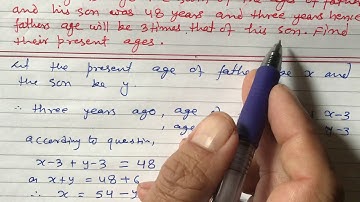 the ages of father
and his son was 48 years and three years hence
fathers age will be 3 times that of his son. Find
their present ages.
Let the present age of father be x and
the son be y.
∴ three years ago, age x-3
age y-3
according to questin,
x-3 + y-3 = 48
or x+y = 48+6
∴ x = 54-y